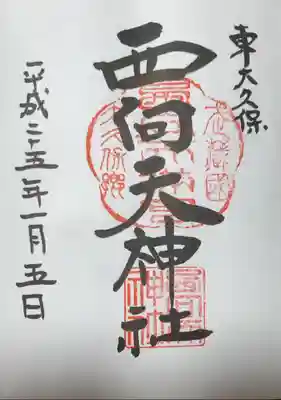 東大久保
西向天神社
平成二十五年一月五日